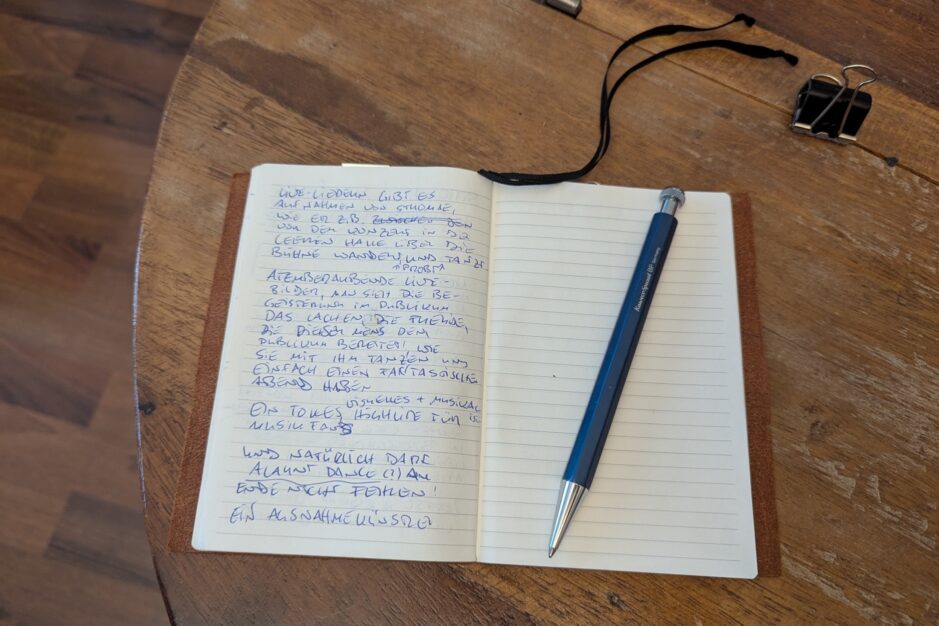 LIVE-LIEDERN GIBT ES
AUFNAHMEN VON STROMAE,
WIE ER Z.B. ZWISCHEN DEN
VOR DEM KONZERT IN DER
LEEREN HALLE ÜBER DIE
BÜHNE WANDERT, UND TANZT
+ PROBT
ATEMBERAUBENDE LIVE-
BILDER, MAN SIEHT DIE BE-
GEISTERUNG IM PUBLIKUM
DAS LACHEN, DIE FREUDE,
DIE DIESER MENS DEM
PUBLIKUM BEREITET, WIE
SIE MIT IHM TANZEN UND
EINFACH EINEN FANTASTISCHEN
ABEND HABEN
VISUELLES + MUSIKAL
EIN TOLLES HIGHLITE FÜR
MUSIK FANS
UND NATÜRLICH DARF
ALAUNT DANCE (?) AM
ENDE NICHT FEHLEN!
EIN AUSNAHMEKÜNSTLER